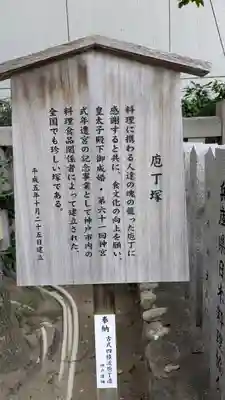 庖丁塚
料理に携わる人達の魂の籠った庖丁に
感謝すると共に、食文化の向上を願い、
皇太子殿下御成婚・第六十一回神宮
式年遷宮の記念事業として神戸市内の
料理食品関係者によって建立された、
全国でも珍しい塚である。
平成五年十月二十五日建立
奉納
兵庫県日本調理